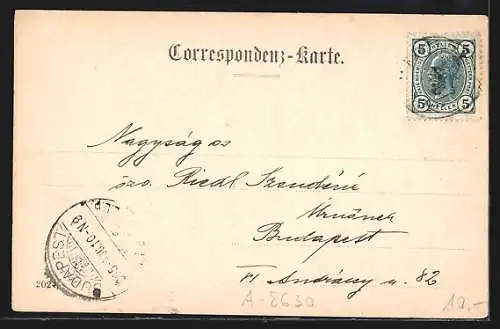 Correspondenz-Karte.
5 5
5 HELLER 5
Nagyságos
özv. Riedl Szendéné
Úrnőnek
Budapest
VI Andrássy u. 82
BUDAPEST
202
A-8630
10.-